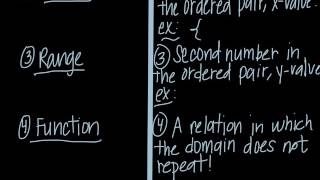 the ordered pair, x-value.
ex: {
③ Range
③ Second number in
the ordered pair, y-value
ex:
④ Function
④ A relation in which
the domain does not
repeat!